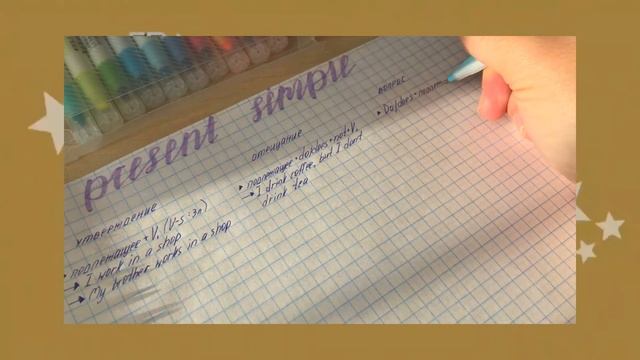 present simple
утверждение
• подлежащее + V₁ (V-s : 3л)
→ I work in a shop
→ My brother works in a shop
отрицание
• подлежащее + do/does + not + V₁
→ I drink coffee, but I don't
drink tea
вопрос
• Do/does +